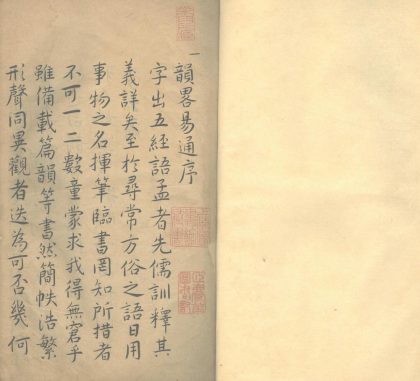 韻畧易通序
字出五經語孟者先儒訓釋其
義詳矣至於尋常方俗之語日用
事物之名揮筆臨書罔知所措者
不可一二數童蒙求我得無窘乎
雖備載篇韻等書然簡帙浩繁
形聲同異觀者迭為可否幾何